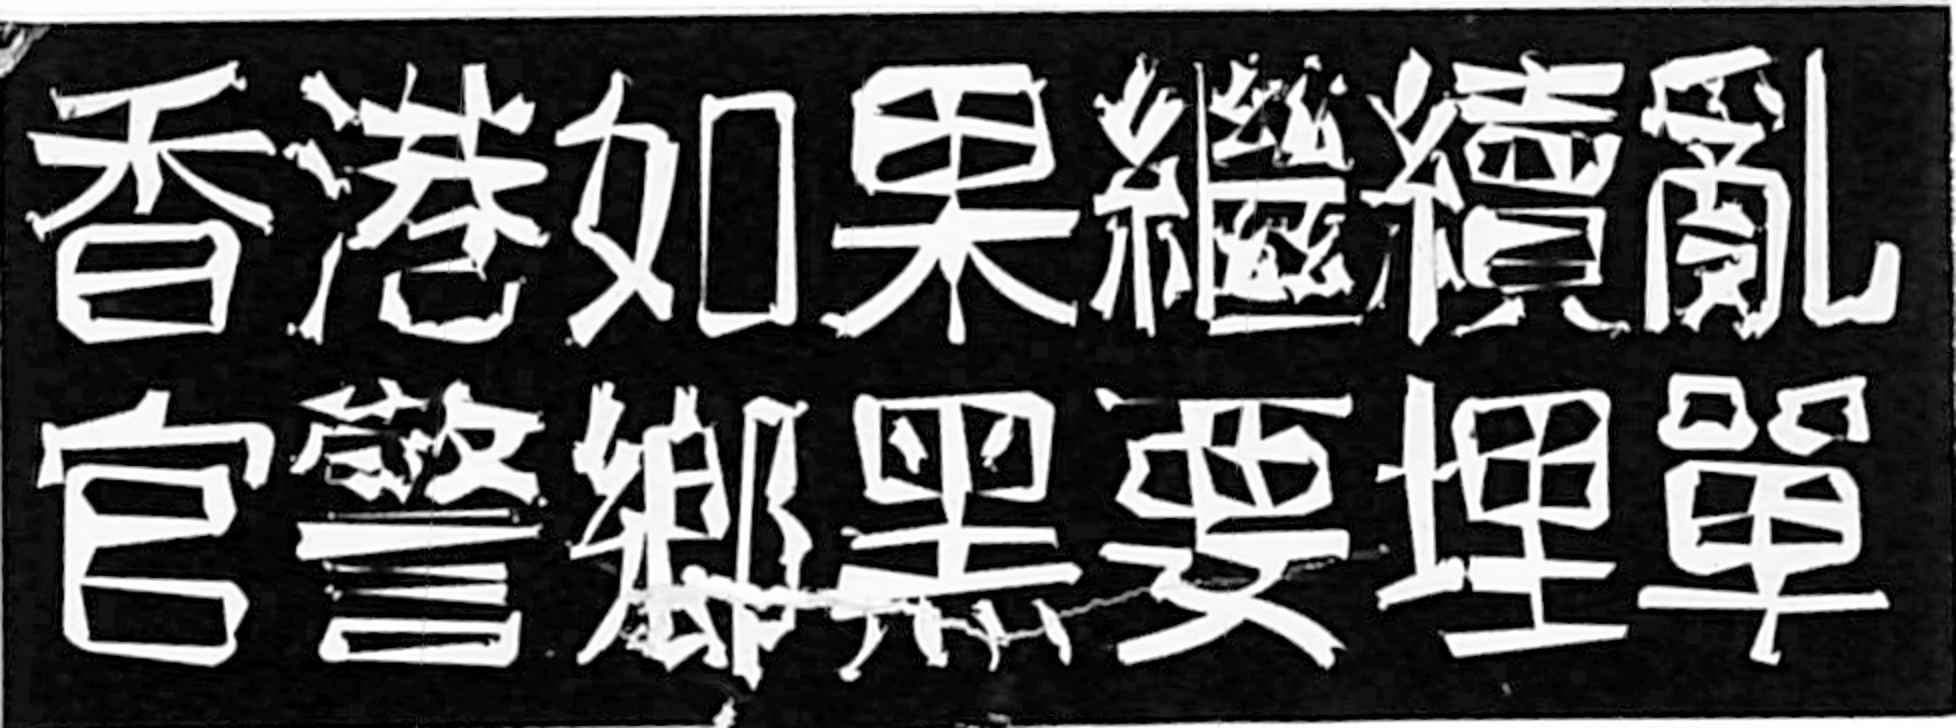 香港如果繼續亂
官警鄉黑要埋單